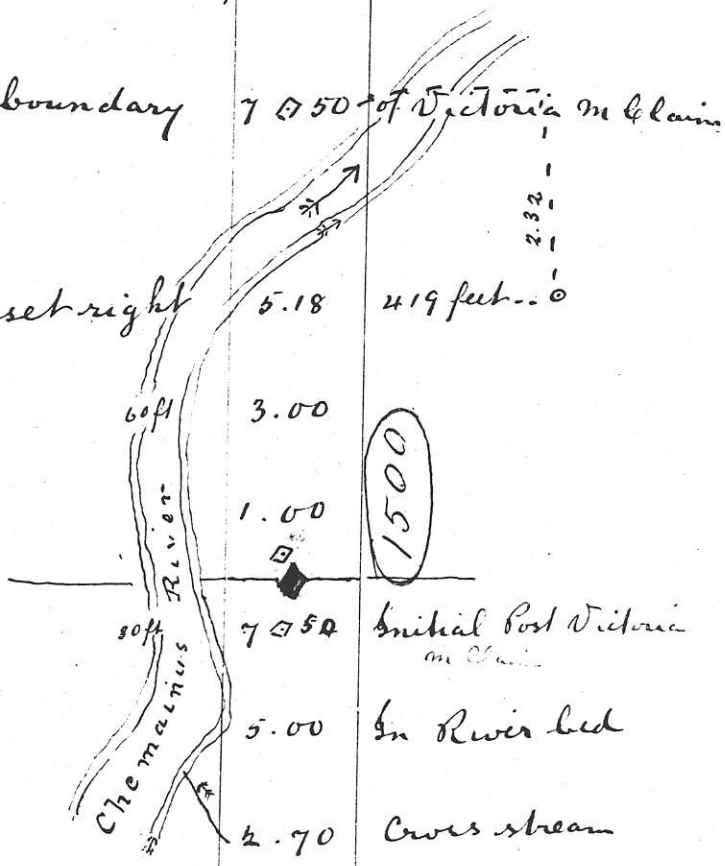 boundary 7 50 of Victoria M Claim
2.32
set right 5.18 419 feet
60ft 3.00
1.00
1500
80ft 7 50 Initial Post Victoria
M Claim
Chemainus River
5.00 In River bed
2.70 Cross stream